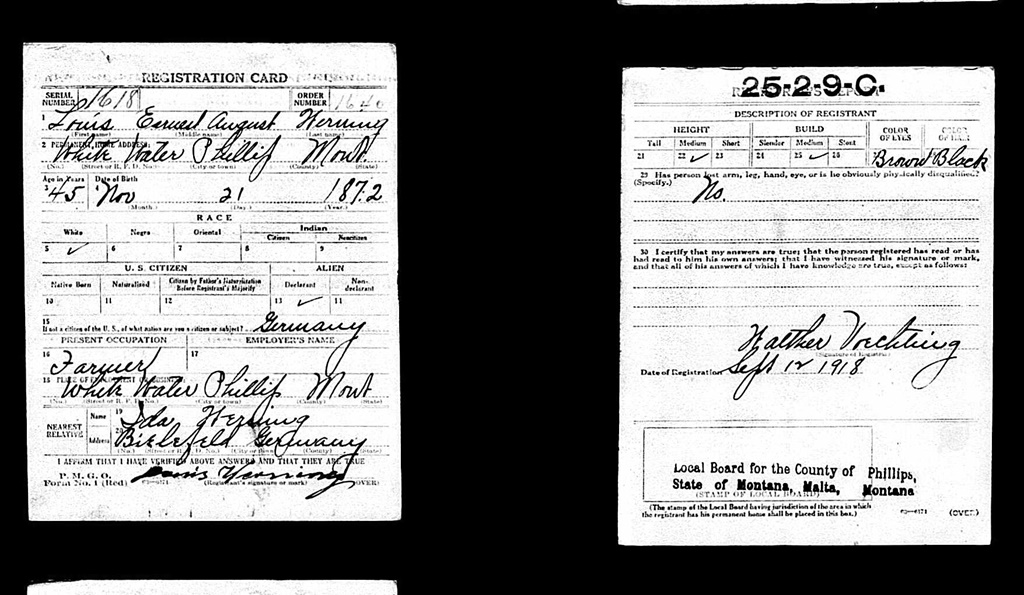 REGISTRATION CARD
SERIAL NUMBER 1618 ORDER NUMBER 1640
1 Louis Earnest August Herning
(First name) (Middle name) (Last name)
2 PERMANENT HOME ADDRESS:
White Water Phillip Mont.
(No.) (Street or R. F. D. No.) (City or town) (County) (State)
Age in Years Date of Birth
3 45 Nov 21 1872
(Month.) (Day.) (Year.)
RACE
White Negro Oriental Indian
Citizen Noncitizen
5 ✓ 6 7 8 9
U. S. CITIZEN ALIEN
Native Born Naturalized Citizen by Father's Naturalization Before Registrant's Majority Declarant Non-declarant
10 11 12 13 ✓ 14
15
If not a citizen of the U. S., of what nation are you a citizen or subject? Germany
PRESENT OCCUPATION EMPLOYER'S NAME
16 Farmer 17
18 PLACE OF EMPLOYMENT OR BUSINESS:
White Water Phillip Mont
(No.) (Street or R. F. D. No.) (City or town) (County) (State)
NEAREST RELATIVE Name 19 Ida Herning
Address 20 Bielefeld Germany
(No.) (Street or R. F. D. No.) (City or town) (County) (State)
I AFFIRM THAT I HAVE VERIFIED ABOVE ANSWERS AND THAT THEY ARE TRUE
P. M. G. O.
Form No. 1 (Red) Louis Herning
(Registrant's signature or mark) (OVER)
25-2-9-C.
REGISTRAR'S REPORT
DESCRIPTION OF REGISTRANT
HEIGHT BUILD COLOR OF EYES COLOR OF HAIR
Tall Medium Short Slender Medium Stout
21 22 ✓ 23 24 25 ✓ 26 Brown Black
29 Has person lost arm, leg, hand, eye, or is he obviously physically disqualified?
(Specify.) No.
30 I certify that my answers are true; that the person registered has read or has
had read to him his own answers; that I have witnessed his signature or mark,
and that all of his answers of which I have knowledge are true, except as follows:
Walther Voechting
(Signature of Registrar)
Date of Registration Sept 12 1918
Local Board for the County of Phillips,
State of Montana, Malta, Montana
(STAMP OF LOCAL BOARD)
(The stamp of the Local Board having jurisdiction of the area in which
the registrant has his permanent home shall be placed in this box.)
(OVER)